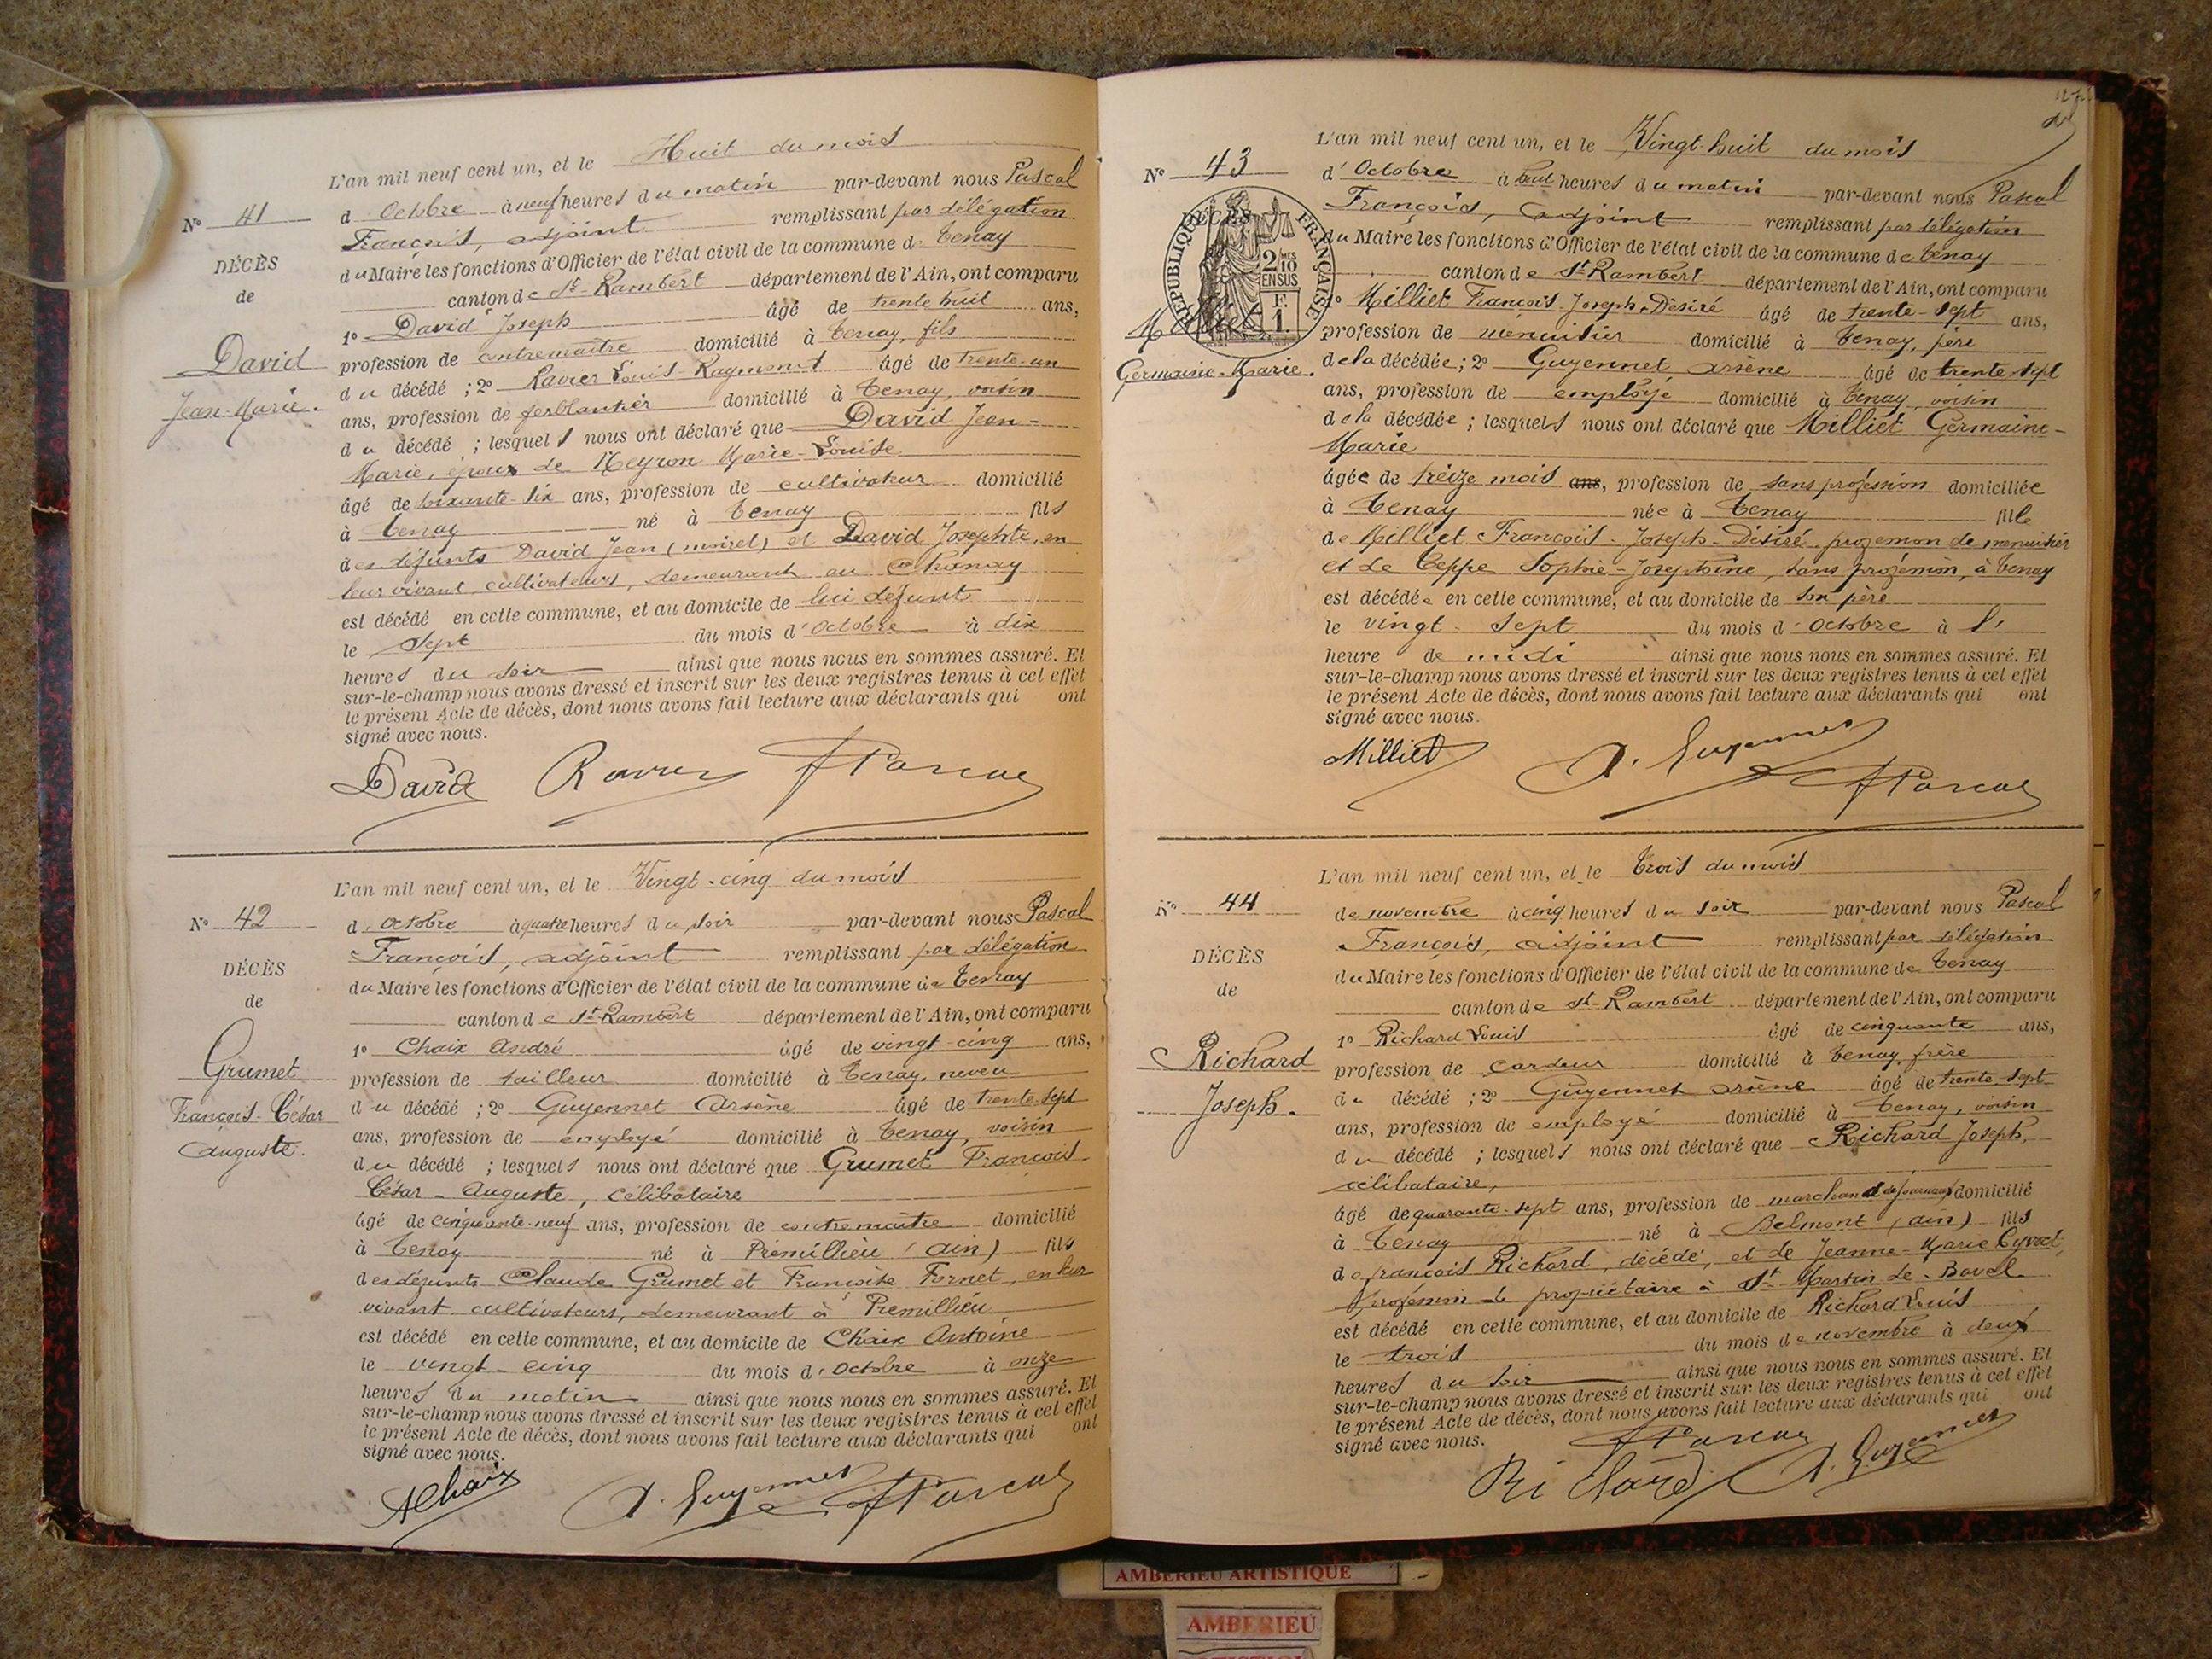 L'an mil neuf cent un, et le Huit du mois
N° 41
d'Octobre à neuf heures du matin par-devant nous Pascal
François, adjoint remplissant par délégation
DÉCÈS
du Maire les fonctions d'Officier de l'état civil de la commune de Tenay
de
canton de St-Rambert département de l'Ain, ont comparu
1° David Joseph âgé de trente huit ans,
David
profession de contremaître domicilié à Tenay, fils
Jean-Marie.
du décédé ; 2° Ravier Louis-Raymond âgé de trente-un
ans, profession de ferblantier domicilié à Tenay, voisin
du décédé ; lesquels nous ont déclaré que David Jean-
Marie, époux de Neyron Marie-Louise
âgé de soixante-six ans, profession de cultivateur domicilié
à Tenay né à Tenay fils
des défunts David Jean (moirel) et David Josephte, en
leur vivant cultivateurs, demeurant au Chanay
est décédé en cette commune, et au domicile de lui défunt
le sept du mois d'Octobre à dix
heures du soir ainsi que nous nous en sommes assuré. Et
sur-le-champ nous avons dressé et inscrit sur les deux registres tenus à cet effet
le présent Acte de décès, dont nous avons fait lecture aux déclarants qui ont
signé avec nous.
David Ravier F Pascal
L'an mil neuf cent un, et le Vingt-cinq du mois
N° 42
d'Octobre à quatre heures du soir par-devant nous Pascal
François, adjoint remplissant par délégation
DÉCÈS
du Maire les fonctions d'Officier de l'état civil de la commune de Tenay
de
canton de St-Rambert département de l'Ain, ont comparu
1° Chaix André âgé de vingt-cinq ans,
Grumet
profession de tailleur domicilié à Tenay, neveu
François-César
du décédé ; 2° Guyennet Arsène âgé de trente-sept
Auguste.
ans, profession de employé domicilié à Tenay, voisin
du décédé ; lesquels nous ont déclaré que Grumet François-
César-Auguste, célibataire
âgé de cinquante-neuf ans, profession de contremaître domicilié
à Tenay né à Prémillieu (Ain) fils
des défunts Claude Grumet et Françoise Fornet, en leur
vivant cultivateurs, demeurant à Premillieu
est décédé en cette commune, et au domicile de Chaix Antoine
le vingt-cinq du mois d'Octobre à onze
heures du matin ainsi que nous nous en sommes assuré. Et
sur-le-champ nous avons dressé et inscrit sur les deux registres tenus à cet effet
le présent Acte de décès, dont nous avons fait lecture aux déclarants qui ont
signé avec nous.
AChaix A. Guyennet F Pascal
L'an mil neuf cent un, et le Vingt-huit du mois
N° 43
d'Octobre à huit heures du matin par-devant nous Pascal
François, adjoint remplissant par délégation
DÉCÈS
RÉPUBLIQUE FRANÇAISE
2 MES
10
EN SUS
F.
1.
du Maire les fonctions d'Officier de l'état civil de la commune de Tenay
canton de St-Rambert département de l'Ain, ont comparu
1° Milliet François-Joseph-Désiré âgé de trente-sept ans,
Milliet
profession de menuisier domicilié à Tenay, père
Germaine-Marie.
de la décédée ; 2° Guyennet Arsène âgé de trente-sept
ans, profession de employé domicilié à Tenay, voisin
de la décédée ; lesquels nous ont déclaré que Milliet Germaine-
Marie
âgée de treize mois ans, profession de sans profession domiciliée
à Tenay née à Tenay fille
de Milliet François-Joseph-Désiré profession de menuisier
et de Ceppe Sophie-Joséphine, sans profession, à Tenay
est décédée en cette commune, et au domicile de son père
le vingt-sept du mois d'Octobre à l'
heure de midi ainsi que nous nous en sommes assuré. Et
sur-le-champ nous avons dressé et inscrit sur les deux registres tenus à cet effet
le présent Acte de décès, dont nous avons fait lecture aux déclarants qui ont
signé avec nous.
Milliet A. Guyennet
F Pascal
L'an mil neuf cent un, et le trois du mois
N° 44
de novembre à cinq heures du soir par-devant nous Pascal
François, adjoint remplissant par délégation
DÉCÈS
du Maire les fonctions d'Officier de l'état civil de la commune de Tenay
de
canton de St-Rambert département de l'Ain, ont comparu
1° Richard Louis âgé de cinquante ans,
Richard
profession de cardeur domicilié à Tenay, frère
Joseph.
du décédé ; 2° Guyennet Arsène âgé de trente-sept
ans, profession de employé domicilié à Tenay, voisin
du décédé ; lesquels nous ont déclaré que Richard Joseph,
célibataire,
âgé de quarante-sept ans, profession de marchand de journaux domicilié
à Tenay né à Belmont (Ain) fils
de François Richard, décédé, et de Jeanne-Marie
profession de propriétaire à St-Martin-de-Bavel
est décédé en cette commune, et au domicile de Richard Louis
le trois du mois de novembre à deux
heures du soir ainsi que nous nous en sommes assuré. Et
sur-le-champ nous avons dressé et inscrit sur les deux registres tenus à cet effet
le présent Acte de décès, dont nous avons fait lecture aux déclarants qui ont
signé avec nous.
F Pascal
Richard A. Guyennet
AMBERIEU ARTISTIQUE
AMBERIEU